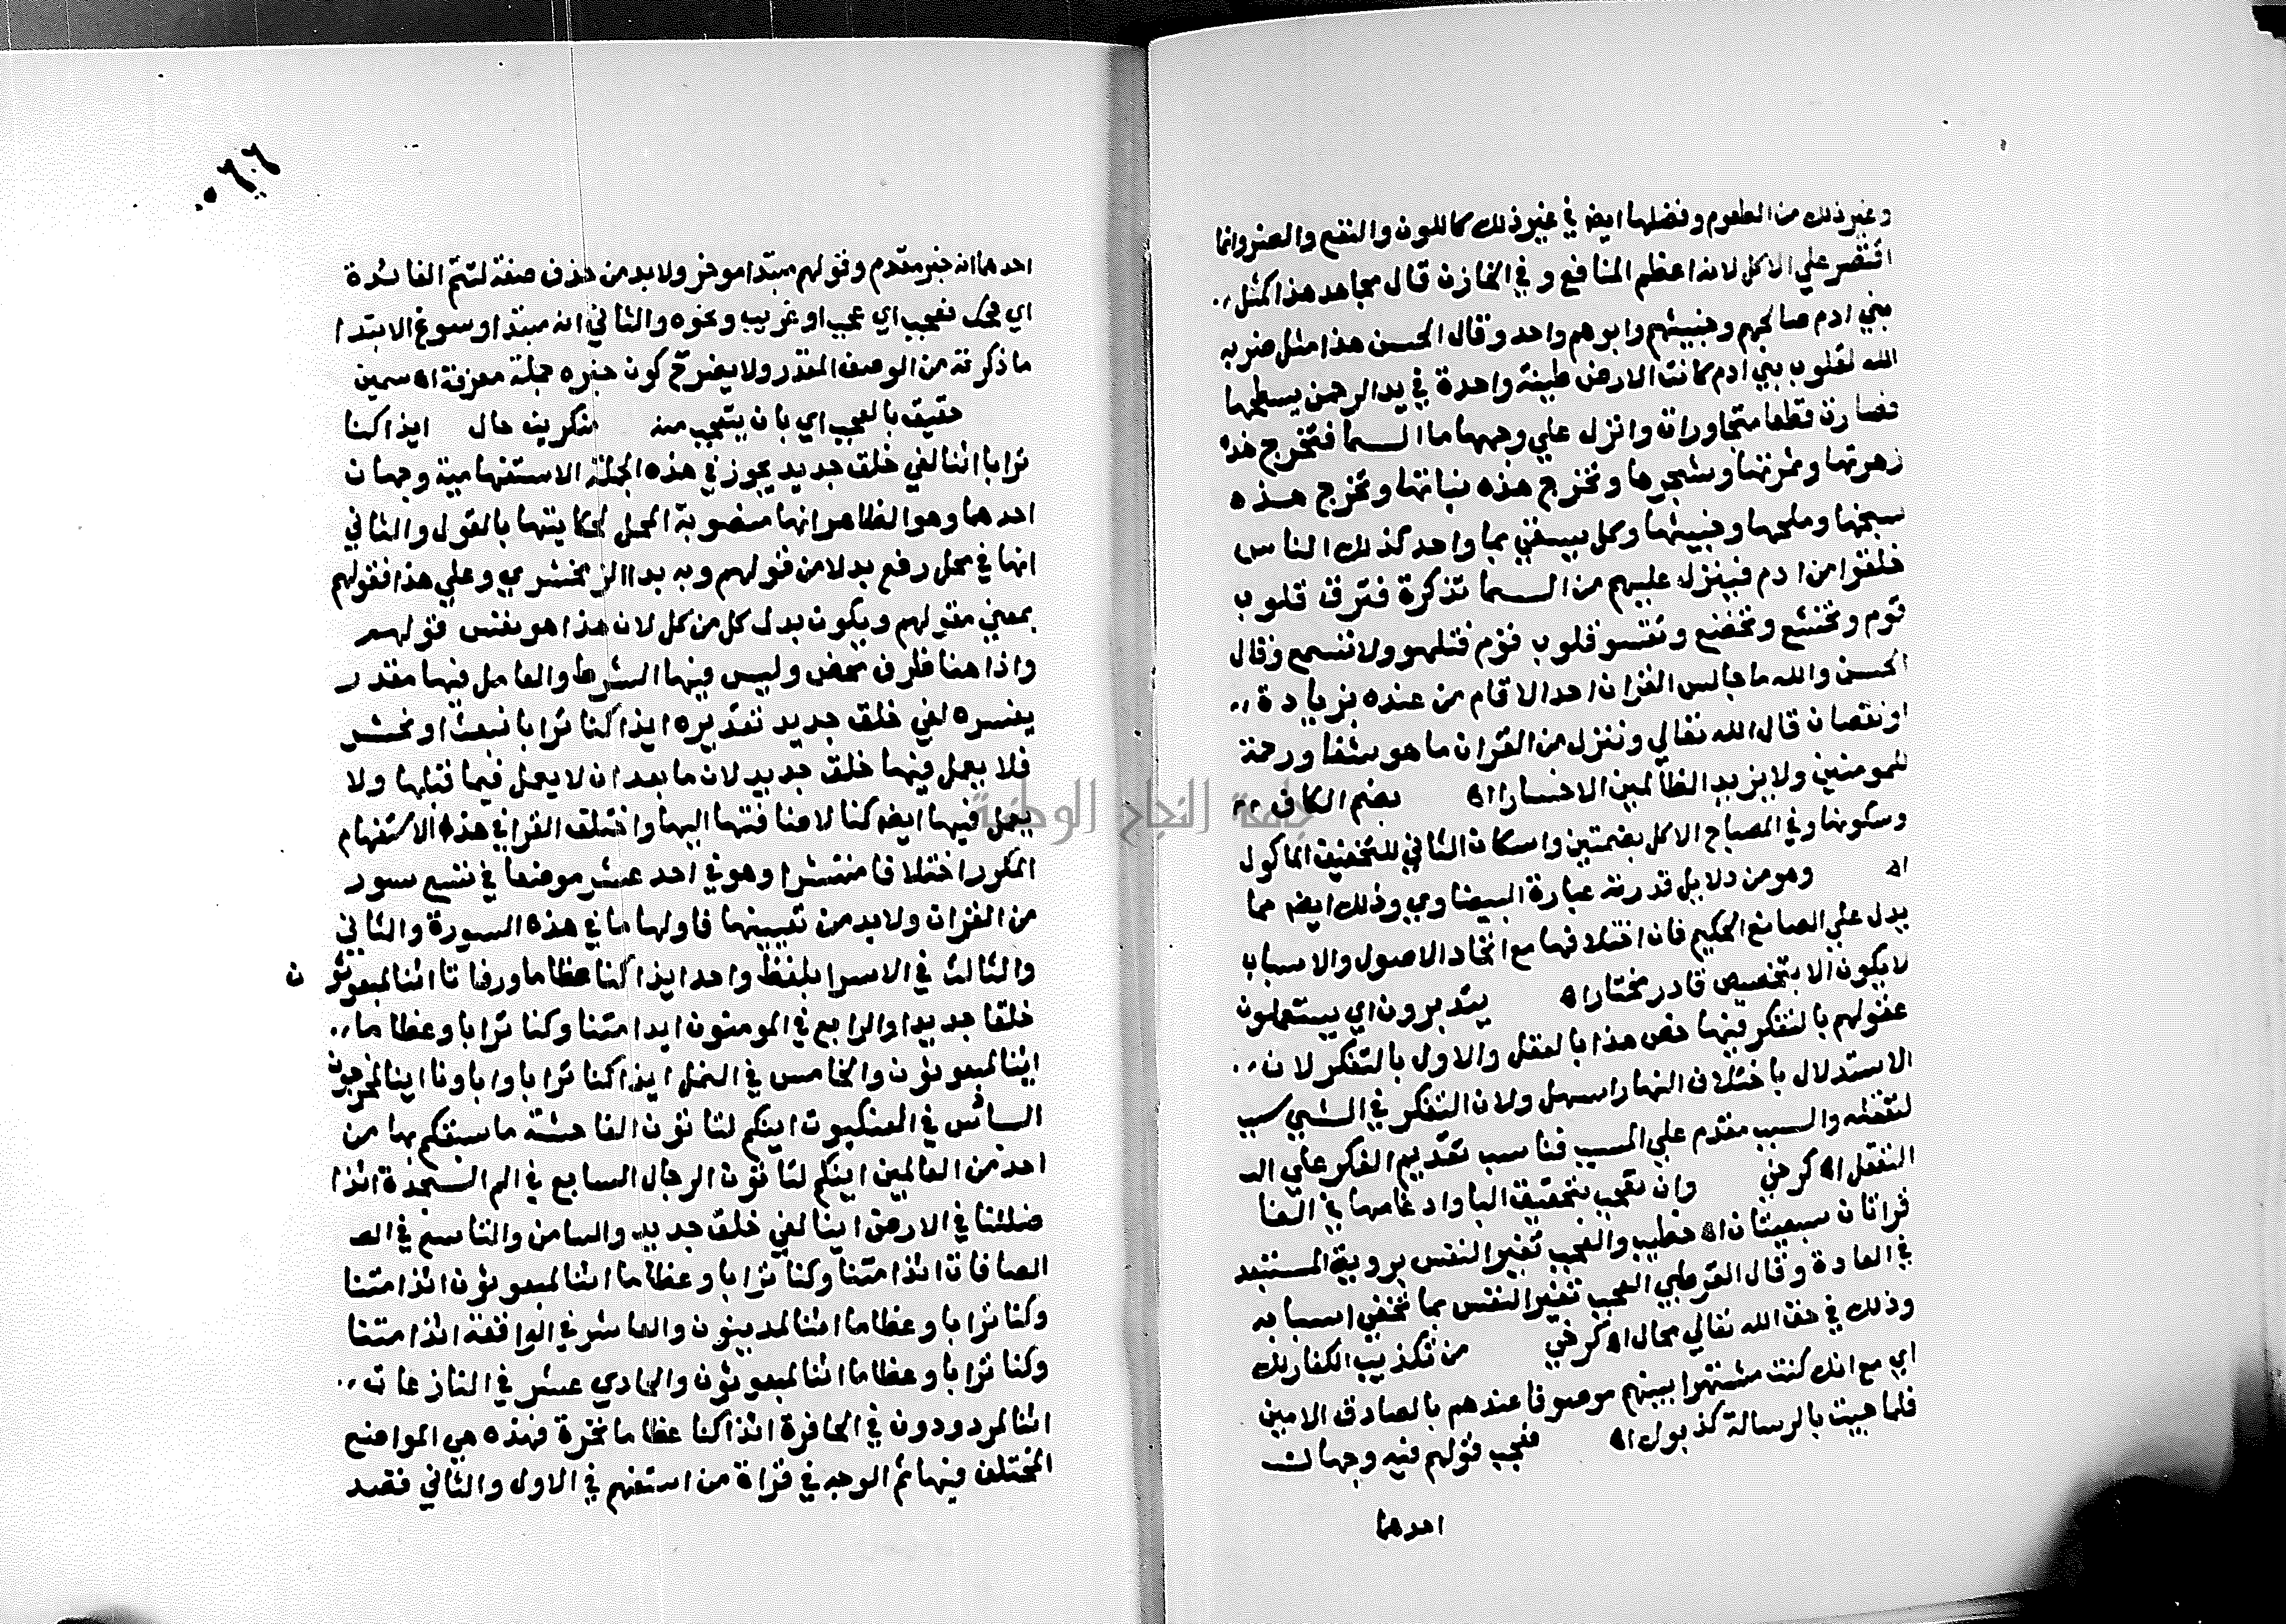 وغير ذلك من الطعوم وفضلها ايضه في غير ذلك كاللون والنفع والضر وانما
اقتصر علي الاكل لانه اعظم المنافع وفي الخازن قال مجاهد هذا كمثل
بني ادم صالحهم وخبيثهم وابوهم واحد وقال الحسن هذا مثل ضربه
الله لقلوب بني ادم كانت الارض طينة واحدة في يد الرحمن يسطحها
فصارت قطعا متجاورات وانزل علي وجهها ما السما فتخرج هذه
زهرتها وثمرتها وشجرها وتخرج هذه نباتها وتخرج هذه
سبخها وملحها وخبيثها وكل يسقي بما واحد كذلك الناس
خلقوا من ادم فينزل عليهم من السما تذكرة فترق قلوب
قوم وتخشع وتخضع وتقسو قلوب قوم فتلهو ولا تسمع وقال
الحسن والله ما جالس القران احد الا قام من عنده بزيادة
او نقصان قال الله تعالي وننزل من القران ما هو شفا ورحمة
للمومنين ولا يزيد الظالمين الا خسارا اه بضم الكاف
وسكونها وفي المصباح الاكل بضمتين واسكان الثاني للتخفيف الماكول
اه وهو من دلايل قدرته عبارة البيضاوي وذلك ايضه مما
يدل علي الصانع الحكيم فان اختلافها مع اتحاد الاصول والاسباب
لا يكون الا بتخصيص قادر مختار اه يتدبرون اي يستعملون
عقولهم بالتفكر فيها خص هذا بالعقل والاول بالتفكر لان
الاستدلال باختلاف النهار اسهل ولان التفكر في الشي سبب
لتعقله والسبب مقدم علي المسبب فناسب تقديم الفكر علي الـ
التعقل اه كرخي وان تعجب بتحقيق البا وادغامها في الفا
قراتان سبعيتان اه خطيب والعجب تغير النفس بروية المستبعد
في العادة وقال القرطبي العجب تغير النفس بما تخفي اسبابه
وذلك في حق الله تعالي محال اه كرخي من تكذيب الكفار لك
اي مع انك كنت مشتهرا بينهم موصوفا عندهم بالصادق الامين
فلما جيت بالرسالة كذبوك اه فعجب قولهم فيه وجهان
احدهما
٥٦٠٦
احدهما انه خبر مقدم وقولهم مبتدا موخر ولا بد من حذف صفة لتتم الفائدة
اي فعجب اي عجب او غريب ونحوه والثاني انه مبتدا وسوغ الابتدا
ما ذكرته من الوصف المقدر ولا يضر ح كون خبره جملة معرفة اه سمين
حقيق بالعجب اي بان يتعجب منه منكرين حال ايذا كنا
ترابا ائنا لفي خلق جديد يجوز في هذه الجملة الاستفهامية وجهان
احدهما وهو الظاهر انها منصوبة المحل لحكايتها بالقول والثاني
انها في محل رفع بدلا من قولهم وبه بدا الزمخشري وعلي هذا فقولهم
بمعني مقولهم ويكون بدل كل من كل لان هذا هو نفس قولهم
واذا هنا ظرف محض وليس فيها الشرط والعامل فيها مقدر
يفسره لفي خلق جديد تقديره ايذا كنا ترابا نبعث او نحشر
فلا يعمل فيها خلق جديد لان ما بعد ان لا يعمل فيما قبلها ولا
يعمل فيها ايضه كنا لاضافتها اليها واختلف القرا في هذا الاستفهام
المكرر اختلافا منتشرا وهو في احد عشر موضعا في تسع سور
من القران ولا بد من تعيينها فاولها ما في هذه السورة والثاني
والثالث في الاسرا بلفظ واحد ايذا كنا عظاما ورفاتا ائنا لمبعوثون
خلقا جديدا والرابع في المومنون ايذا متنا وكنا ترابا وعظاما
اينا لمبعوثون والخامس في النمل ايذا كنا ترابا واباونا اينا لمخرجون
السادس في العنكبوت اينكم لتاتون الفاحشة ما سبقكم بها من
احد من العالمين اينكم لتاتون الرجال السابع في الم السجدة ائذا
ضللنا في الارض اينا لفي خلق جديد والثامن والتاسع في الصـ
الصافات ائذا متنا وكنا ترابا وعظاما ائنا لمبعوثون ائذا متنا
وكنا ترابا وعظاما ائنا لمدينون والعاشر في الواقعة ائذا متنا
وكنا ترابا وعظاما ائنا لمبعوثون والحادي عشر في النازعات
ائنا لمردودون في الحافرة ائذا كنا عظاما نخرة فهذه هي المواضع
المختلف فيها ثم الوجه في قراة من استفهم في الاول والثاني قصد
جامعة النجاح الوطنية